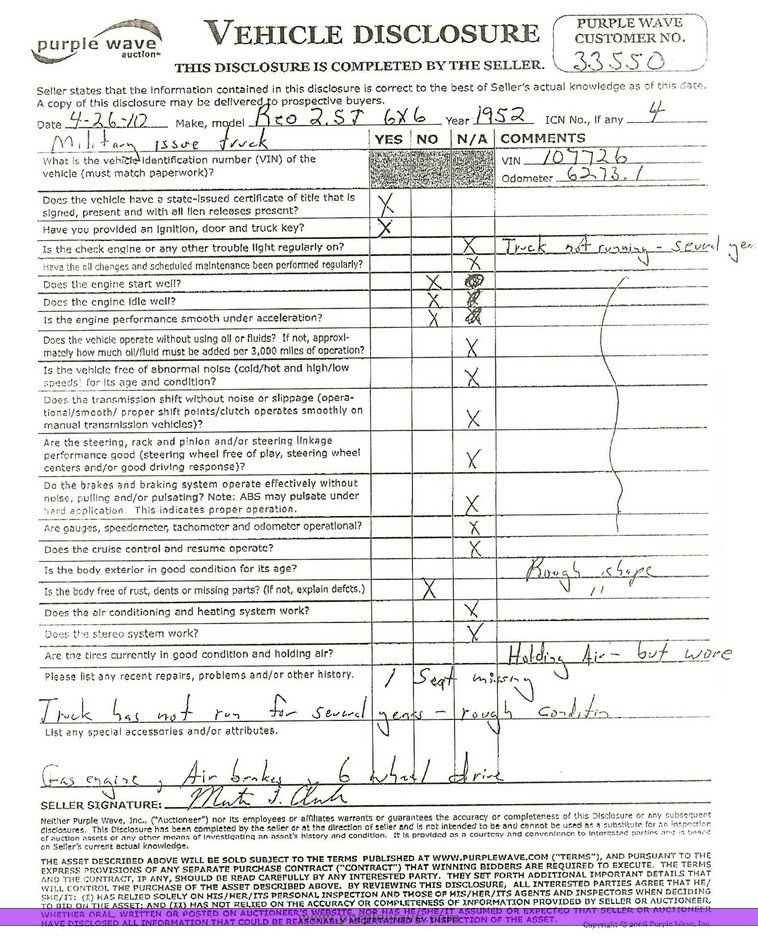 purple wave
auction™
VEHICLE DISCLOSURE
THIS DISCLOSURE IS COMPLETED BY THE SELLER.
PURPLE WAVE
CUSTOMER NO.
33550
Seller states that the information contained in this disclosure is correct to the best of Seller's actual knowledge as of this date.
A copy of this disclosure may be delivered to prospective buyers.
Date 4-26-10 Make, model Reo 2.5T 6X6 Year 1952 ICN No., if any 4
Military issue truck YES NO N/A COMMENTS
What is the vehicle identification number (VIN) of the VIN 107726
vehicle (must match paperwork)? Odometer 6273.1
Does the vehicle have a state-issued certificate of title that is
signed, present and with all lien releases present? X
Have you provided an ignition, door and truck key? X
Is the check engine or any other trouble light regularly on? X Truck not running - several yea
Have the oil changes and scheduled maintenance been performed regularly? X
Does the engine start well? X
Does the engine idle well? X
Is the engine performance smooth under acceleration? X
Does the vehicle operate without using oil or fluids? If not, approxi-
mately how much oil/fluid must be added per 3,000 miles of operation? X
Is the vehicle free of abnormal noise (cold/hot and high/low
speeds) for its age and condition? X
Does the transmission shift without noise or slippage (opera-
tional/smooth/ proper shift points/clutch operates smoothly on
manual transmission vehicles)? X
Are the steering, rack and pinion and/or steering linkage
performance good (steering wheel free of play, steering wheel
centers and/or good driving response)? X
Do the brakes and braking system operate effectively without
noise, pulling and/or pulsating? Note: ABS may pulsate under
hard application. This indicates proper operation. X
Are gauges, speedometer, tachometer and odometer operational? X
Does the cruise control and resume operate? X
Is the body exterior in good condition for its age? Rough shape
Is the body free of rust, dents or missing parts? (If not, explain defcts.) X "
Does the air conditioning and heating system work? X
Does the stereo system work? X
Are the tires currently in good condition and holding air? Holding Air - but wore
Please list any recent repairs, problems and/or other history. 1 Seat missing
Truck has not run for several years - rough condition
List any special accessories and/or attributes.
Gas engine, Air brakes, 6 wheel drive
SELLER SIGNATURE:
Neither Purple Wave, Inc., ("Auctioneer") nor its employees or affiliates warrants or guarantees the accuracy or completeness of this Disclosure or any subsequent
disclosures. This Disclosure has been completed by the seller or at the direction of seller and is not intended to be and cannot be used as a substitute for an inspection
of auction assets or any other means of investigating an asset's history and condition. It is provided as a courtesy and convenience to interested parties and is based
on Seller's current actual knowledge.
THE ASSET DESCRIBED ABOVE WILL BE SOLD SUBJECT TO THE TERMS PUBLISHED AT WWW.PURPLEWAVE.COM ("TERMS"), AND PURSUANT TO THE
EXPRESS PROVISIONS OF ANY SEPARATE PURCHASE CONTRACT ("CONTRACT") THAT WINNING BIDDERS ARE REQUIRED TO EXECUTE. THE TERMS
AND THE CONTRACT, IF ANY, SHOULD BE READ CAREFULLY BY ANY INTERESTED PARTY. THEY SET FORTH ADDITIONAL IMPORTANT DETAILS THAT
WILL CONTROL THE PURCHASE OF THE ASSET DESCRIBED ABOVE. BY REVIEWING THIS DISCLOSURE, ALL INTERESTED PARTIES AGREE THAT HE/
SHE/IT: (I) HAS RELIED SOLELY ON HIS/HER/ITS PERSONAL INSPECTION AND THOSE OF HIS/HER/ITS AGENTS AND INSPECTORS WHEN DECIDING
TO BID ON THE ASSET; AND (II) HAS NOT RELIED ON THE ACCURACY OR COMPLETENESS OF INFORMATION PROVIDED BY SELLER OR AUCTIONEER,
WHETHER ORAL, WRITTEN OR POSTED ON AUCTIONEER'S WEBSITE, NOR HAS HE/SHE/IT ASSUMED OR EXPECTED THAT SELLER OR AUCTIONEER
HAVE DISCLOSED ALL INFORMATION THAT COULD BE REASONABLY ASCERTAINED BY INSPECTION OF THE ASSET.
Copyright © 2008 Purple Wave, Inc.